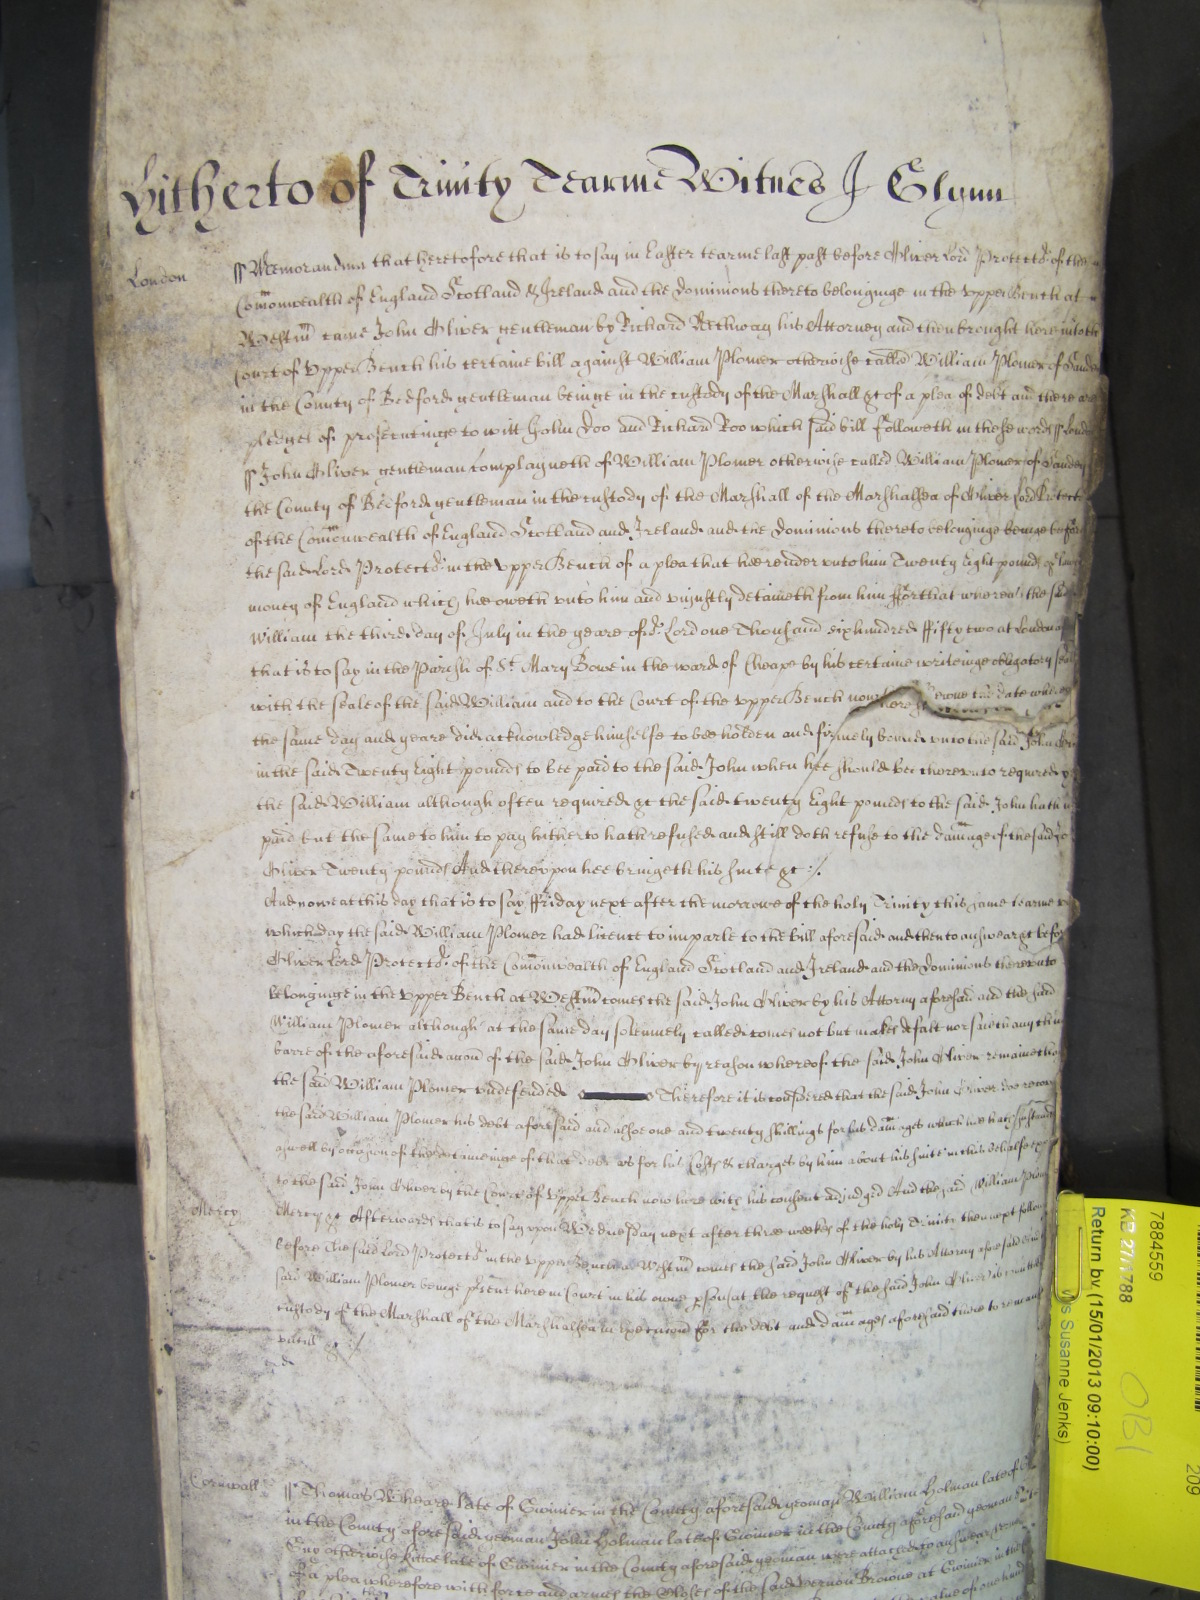 Hitherto of Trinity Tearme Witnes J Glynn
London
ss Memorandum that heretofore that is to say in Easter tearme last past before Oliver Lord Protector of the
Comonwealth of England Scotland & Ireland and the dominions thereto belonginge in the upper Bench at
Westmr came John Oliver gentleman by Richard his Attorney and then brought here into the
Court of Upper Bench his certaine bill against William Plomer otherwise called William Plomer of
in the County of Bedford gentleman beinge in the custody of the Marshall &c of a plea of debt and there are
pledges of prosecutinge to witt John Doo and Richard Roo which said bill followeth in these words ss London
ss John Oliver gentleman complayneth of William Plomer otherwise called William Plomer of
the County of Bedford gentleman in the custody of the Marshall of the Marshalsea of Oliver Lord Protector
of the Comonwealth of England Scotland and Ireland and the dominions thereto belonginge beinge before
the said Lord Protector in the upper Bench of a plea that hee render unto him Twenty Eight pounds of lawfull
money of England which hee oweth unto him and uniustly detaineth from him ffor that whereas the said
William the third day of July in the yeare of or Lord one Thousand six hundred ffifty two at London
that is to say in the Parish of St Mary Bowe in the ward of Cheape by his certaine writeinge obligatory
with the seale of the said William and to the Court of the upper Bench now here the date whereof
the same day and yeare did acknowledge himselfe to bee holden and firmely bound unto the said John
in the said Twenty Eight pounds to bee paid to the said John when hee should bee thereunto required
the said William although often required &c the said twenty Eight pounds to the said John hath
paid but the same to him to pay hitherto hath refused and still doth refuse to the damage of the said
Oliver Twenty pounds And thereupon hee bringeth his suite &c
And nowe at this day that is to say ffriday next after the morrowe of the holy Trinity this same tearme
which day the said William Plomer had licence to imparle to the bill aforesaid and then to answear &c before
Oliver Lord Protector of the Comonwealth of England Scotland and Ireland and the dominions thereunto
belonginge in the upper Bench at Westmr comes the said John Oliver by his Attorny aforesaid and the said
William Plomer although at the same day solemnely called comes not but makes defalt nor saieth any thinge
barre of the aforesaid accon of the said John Oliver by reason whereof the said John Oliver remaineth
the said William Plomer undefended Therefore it is considered that the said John Oliver doe recover
the said William Plomer his debt aforesaid and alsoe one and twenty shillings for his damages which hee hath sustained
aswell by occasion of the deteineinge of that debt as for his Costs & charges by him about his suite in this behalfe
to the said John Oliver by the Court of Upper Bench now here with his consent adjudged And the said William Plomer
Mercy
Mercy &c Afterwards that is to say upon Wednesday next after three weekes of the holy Trinity then next
before the said Lord Protector in the upper Bench at Westmr comes the said John Oliver by his Attorny aforesaid
said William Plomer beinge present here in Court in his owne pson at the request of the said John Oliver is comitted
custody of the Marshall of the Marshalsea in execucon for the debt and damages aforesaid there to remaine
untill &c
Cornwall
ss Thomas late of in the County aforesaid yeoman William Holman late of
in the County aforesaid yeoman John Holman late of in the County aforesaid yeoman
otherwise late of in the County aforesaid yeoman were attached to answear
of a plea wherefore with force and armes the Closes of the said Vernon Browne at in the
7884559
KB 27/1788
Return by (15/01/2013 09:10:00)
Susanne Jenks)
OBI
209